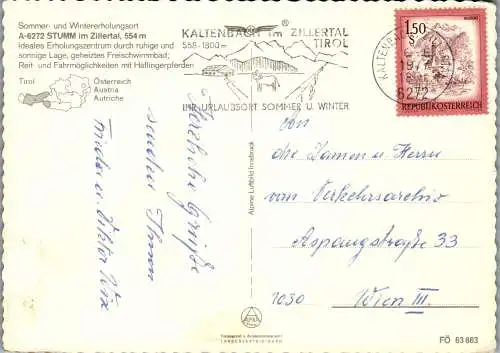 Sommer- und Wintererholungsort
A-6272 STUMM im Zillertal, 554 m
Ideales Erholungszentrum durch ruhige und
sonnige Lage, geheiztes Freischwimmbad,
Reit- und Fahrmöglichkeiten mit Haflingerpferden
Tirol
Österreich
Austria
Autriche
KALTENBACH im ZILLERTAL
558-1800m TIROL
IHR URLAUBSORT SOMMER U. WINTER
6272
1.50
REPUBLIK ÖSTERREICH
Herzliche Grüße
senden Ihnen
Frieda u. Viktor
Alpine Luftbild Innsbruck
An
die Damen u. Herren
vom Verkehrsarchiv
Aspangstraße 33
1030 Wien III.
FÖ 63 663